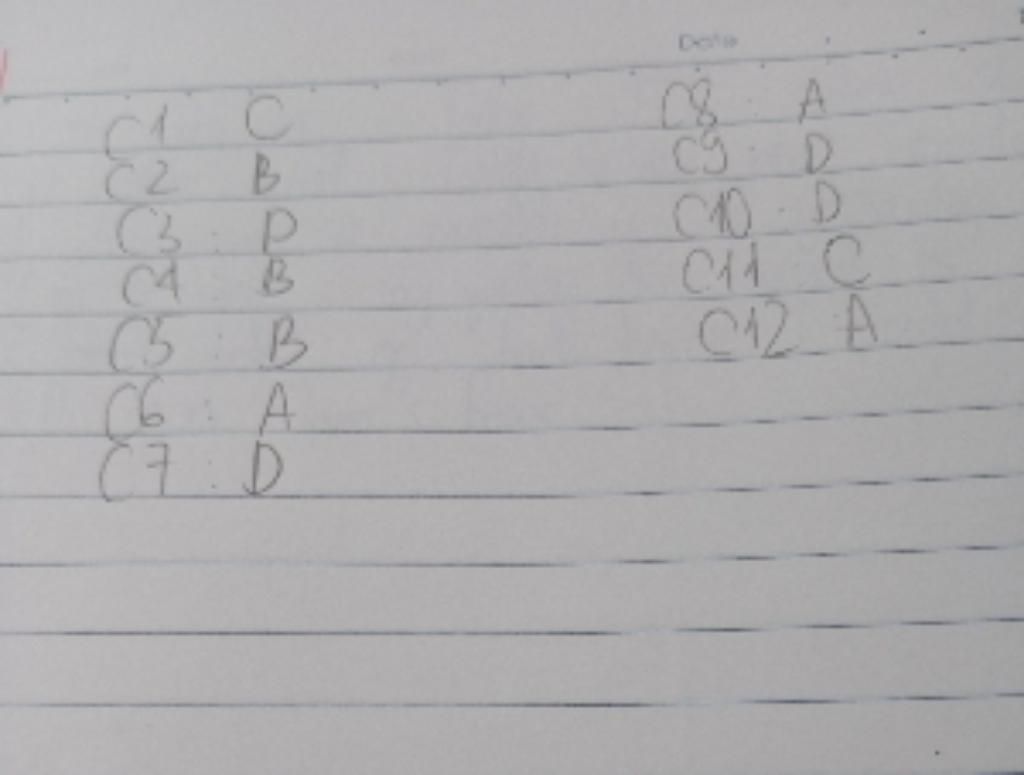 Date
C1 C
C2 B
C3 : D
C4 : B
C5 : B
C6 : A
C7 : D
C8 : A
C9 : D
C10 : D
C11 C
C12 A